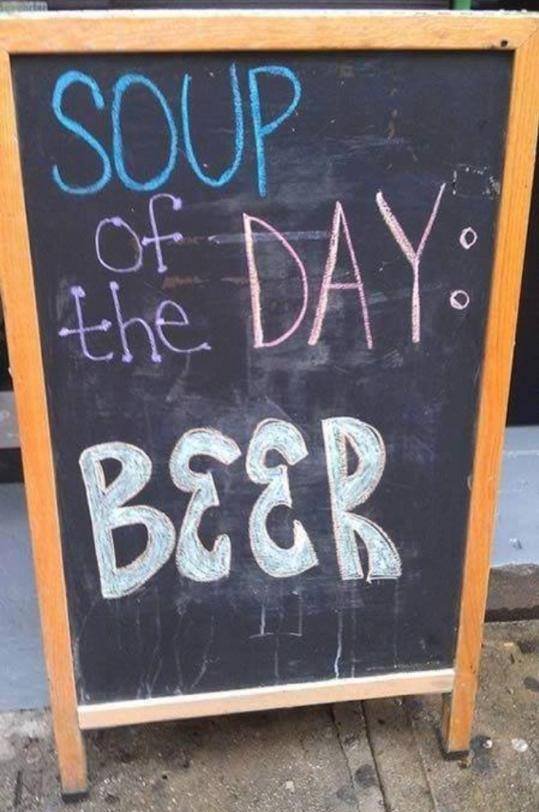 SOUP
of
the DAY:
BEER